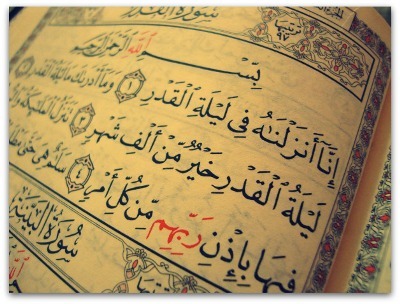 سورة القدر
بِسْمِ اللَّهِ الرَّحْمَٰنِ الرَّحِيمِ
إِنَّا أَنزَلْنَٰهُ فِى لَيْلَةِ ٱلْقَدْرِ ١ وَمَآ أَدْرَىٰكَ مَا لَيْلَةُ ٱلْقَدْرِ ٢
لَيْلَةُ ٱلْقَدْرِ خَيْرٌ مِّنْ أَلْفِ شَهْرٍ ٣ تَنَزَّلُ ٱلْمَلَٰٓئِكَةُ
فِيهَا بِإِذْنِ رَبِّهِم مِّن كُلِّ أَمْرٍ ٤ سَلَٰمٌ هِىَ حَتَّىٰ
سُورَةُ البَيِّنَةِ